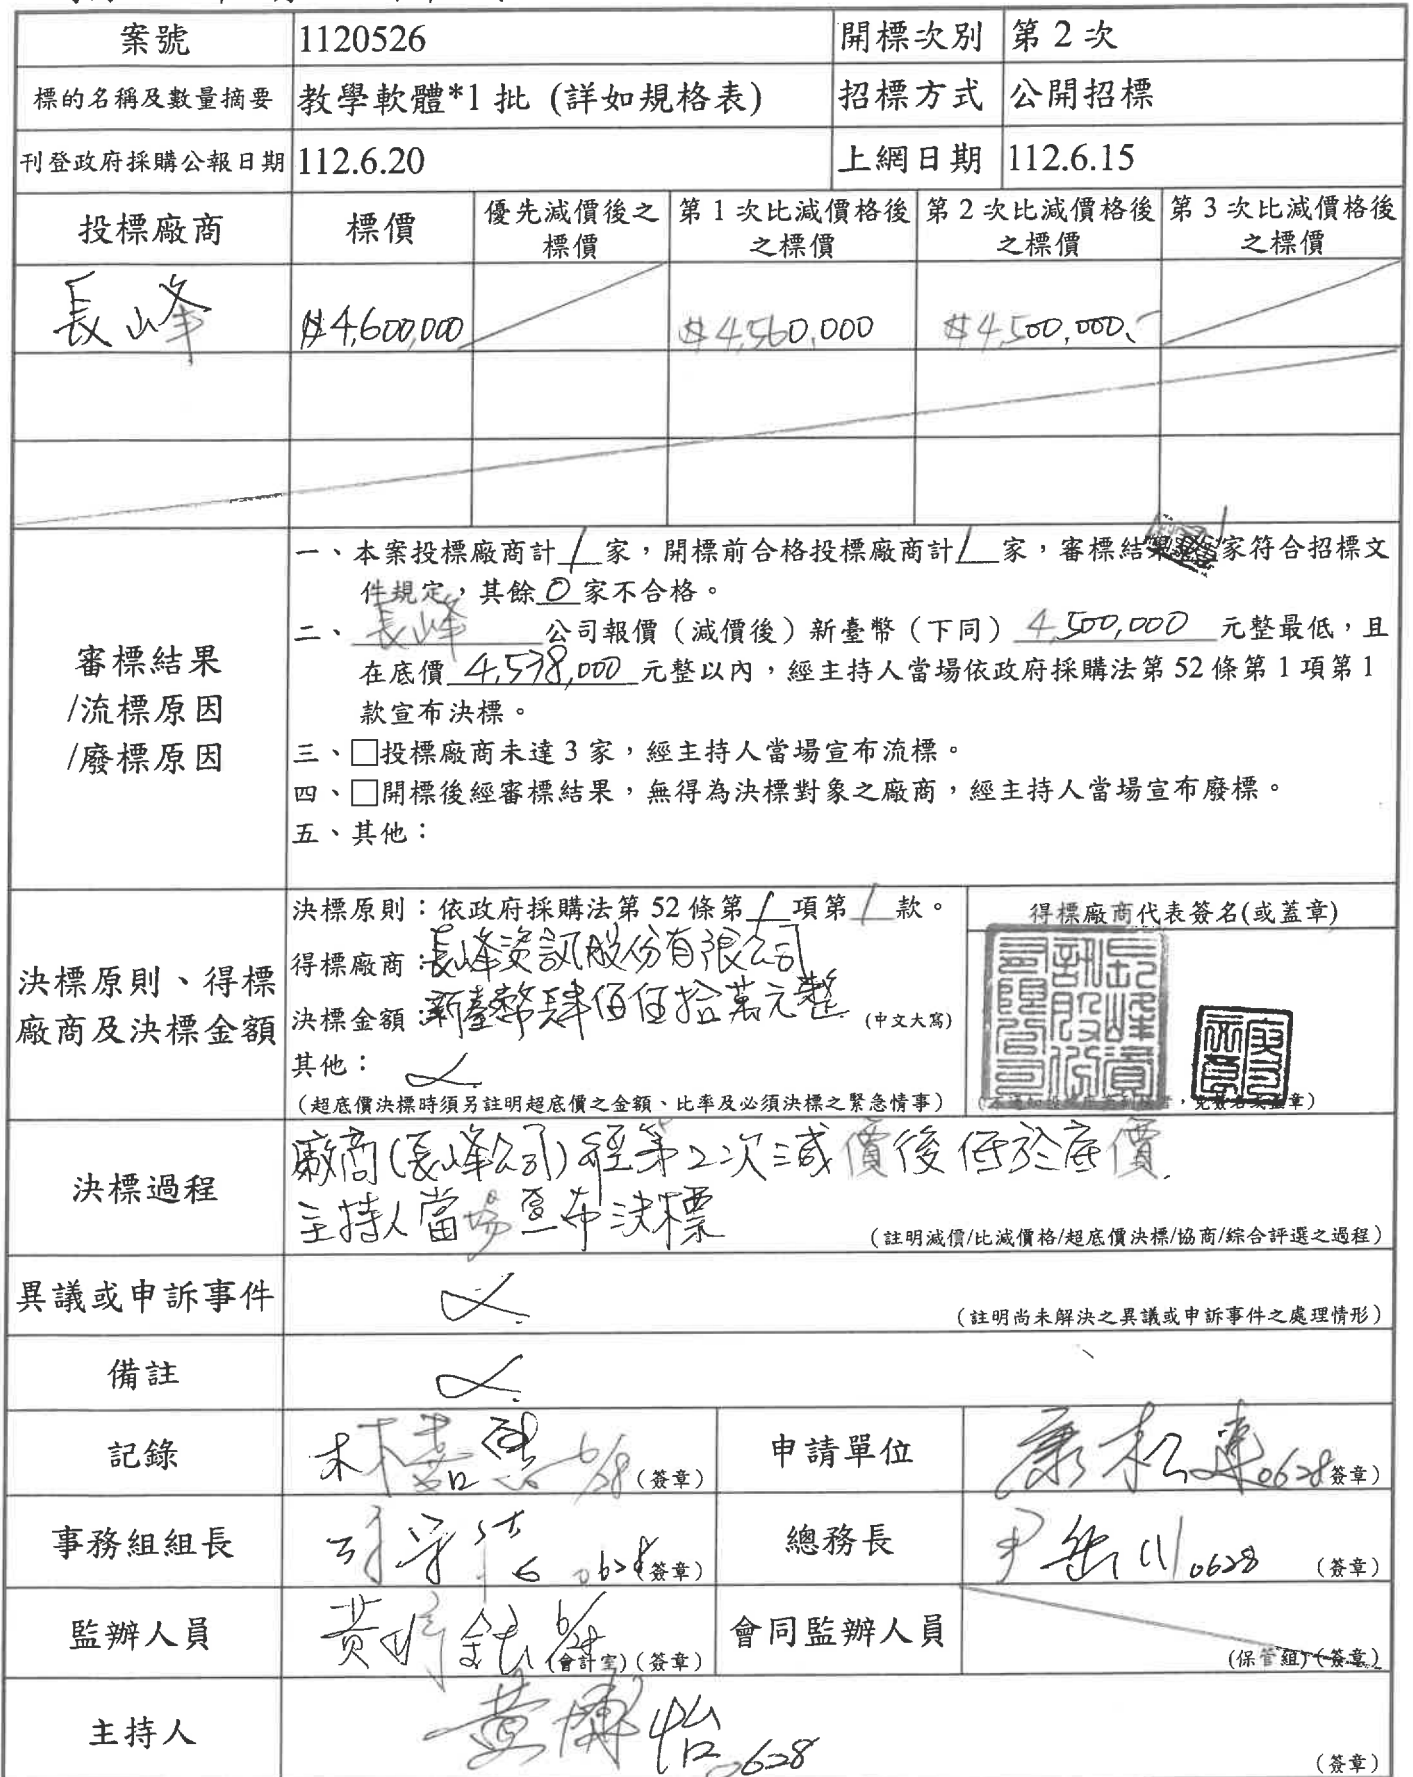 案號 1120526 開標次別 第 2 次
標的名稱及數量摘要 教學軟體*1 批 (詳如規格表) 招標方式 公開招標
刊登政府採購公報日期 112.6.20 上網日期 112.6.15
投標廠商 標價 優先減價後之標價 第 1 次比減價格後之標價 第 2 次比減價格後之標價 第 3 次比減價格後之標價
長峰 $4,600,000 $4,560,000 $4,500,000.-
審標結果
/流標原因
/廢標原因
一、本案投標廠商計 1 家，開標前合格投標廠商計 1 家，審標結果 1 家符合招標文
件規定，其餘 0 家不合格。
二、 長峰 公司報價（減價後）新臺幣（下同） 4,500,000 元整最低，且
在底價 4,538,000 元整以內，經主持人當場依政府採購法第 52 條第 1 項第 1
款宣布決標。
三、□投標廠商未達 3 家，經主持人當場宣布流標。
四、□開標後經審標結果，無得為決標對象之廠商，經主持人當場宣布廢標。
五、其他：
決標原則、得標
廠商及決標金額
決標原則：依政府採購法第 52 條第 1 項第 1 款。
得標廠商：長峰資訊股份有限公司
決標金額：新臺幣肆佰伍拾萬元整 (中文大寫)
其他：
（超底價決標時須另註明超底價之金額、比率及必須決標之緊急情事）
得標廠商代表簽名(或蓋章)
長峰資訊股份有限公司
決標過程
廠商(長峰公司)經第2次減價後低於底價.
主持人當場宣布決標
（註明減價/比減價格/超底價決標/協商/綜合評選之過程）
異議或申訴事件 （註明尚未解決之異議或申訴事件之處理情形）
備註
記錄 6/28 (簽章) 申請單位 0628 簽章)
事務組組長 0628 (簽章) 總務長 0628 (簽章)
監辦人員 (會計室) (簽章) 會同監辦人員 (保管組) (簽章)
主持人 0628 (簽章)